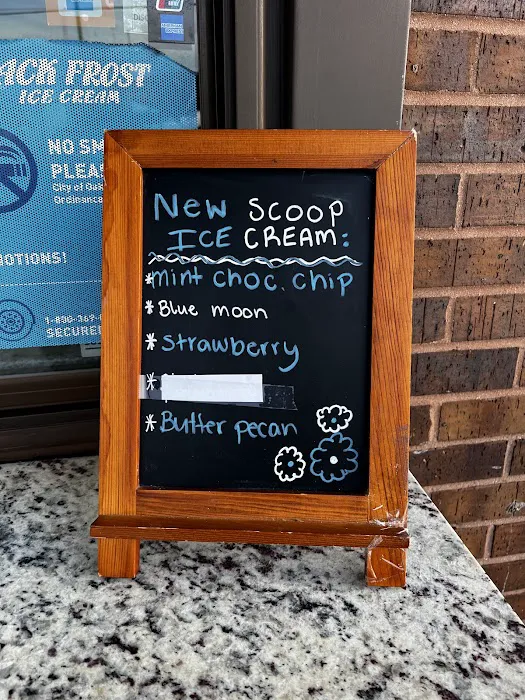 ACK FROST
ICE CREAM
NO SM
PLEA
City of Oa
Ordinanc
OTIONS!
1-890-369-
SECURE
New SCOOP
ICE CREAM:
*mint choc. chip
*Blue moon
*Strawberry
*
*Butter pecan